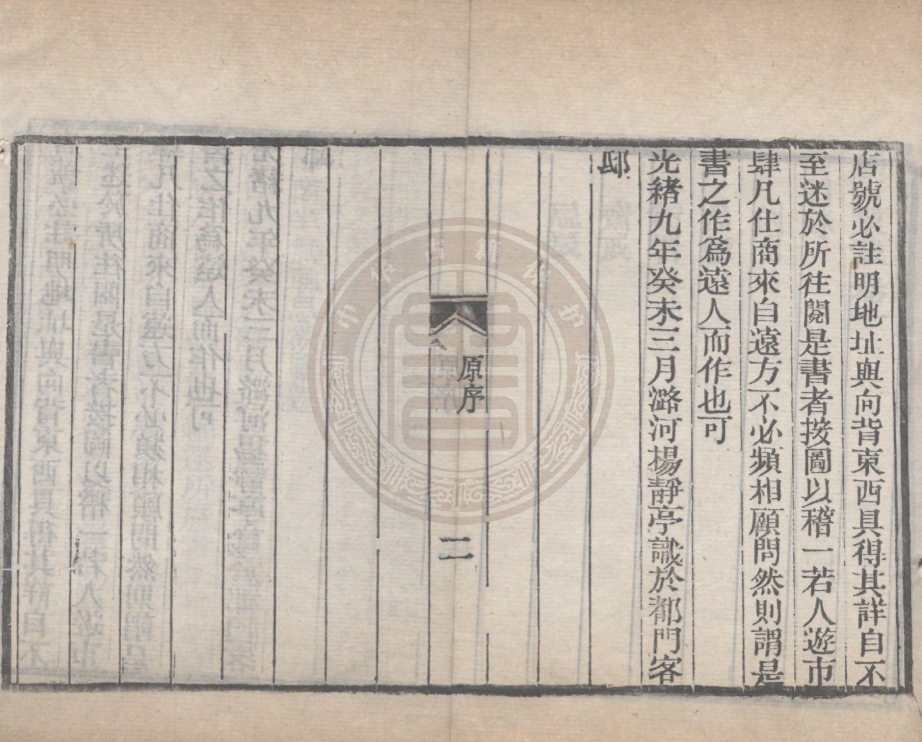 店號必註明地址與向背東西具得其詳自不
至迷於所往閱是書者按圖以稽一若人遊市
肆凡仕商來自遠方不必頻相顧問然則謂是
書之作爲遠人而作也可
光緒九年癸未三月潞河楊靜亭識於都門客
邸
原序
二